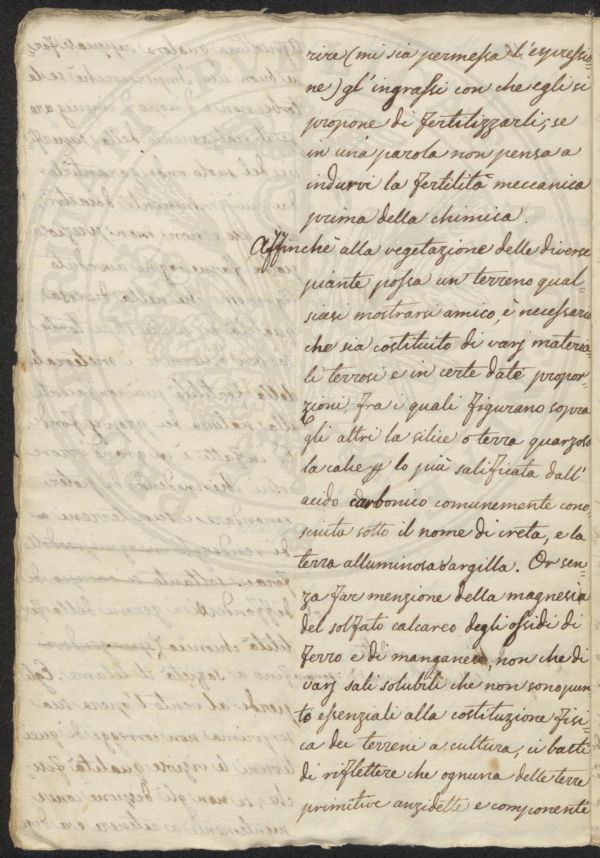 rire (mi sia permessa l'espressio-
ne) gl'ingrassi con che egli si
propone di fertilizzarli; se
in una parola non pensa a
indurvi la fertilità meccanica
prima della chimica.
Affinchè alla vegetazione delle diverse
piante possa un terreno qual-
siasi mostrarsi amico, è necessario
che sia costituito di varj materia-
li terrosi e in certe date propor-
zioni, fra i quali figurano sopra
gli altri la silice o terra quarzosa
la calce lo più salificata dall'
acido carbonico comunemente cono-
sciuta sotto il nome di creta, e la
terra alluminosa o argilla. Or sen-
za far menzione della magnesia
del solfato calcareo degli ossidi di
ferro e di manganese, non che di
varj sali solubili che non sono pun-
to essenziali alla costituzione fisi-
ca dei terreni a cultura, ci basti
di riflettere che ognuna delle terre
primitive anzidette e componente